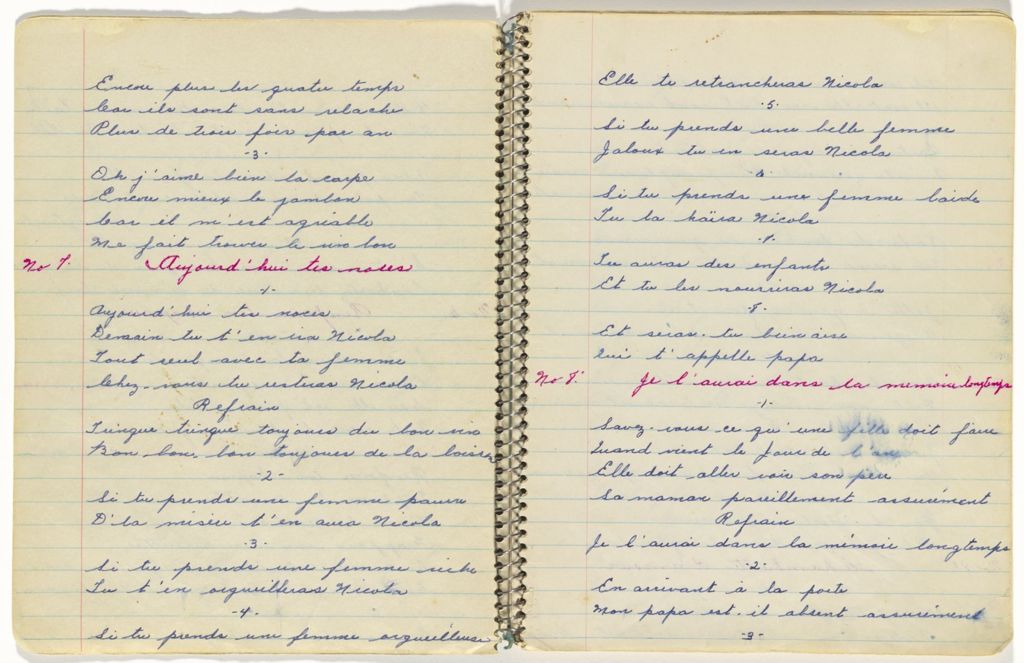 Encore plus les quatre temps
Car ils sont sans relache
Plus de trois fois par an
-3-
Oh j'aime bien la carpe
Encore mieux le jambon
Car il m'est agriable
Me fait trouver le vin bon
No 7. Aujourd'hui tes noces
-1-
Aujourd'hui tes noces
Demain tu t'en ira Nicola
Tout seul avec ta femme
Chez-vous tu resteras Nicola
Refrain
Tringue tringue toujours du bon vin
Bon bon, bon toujours de la boisson
-2-
Si tu prends une femme pauvre
D'la misère t'en aura Nicola
-3-
Si tu prends une femme riche
Tu t'en orgueilleras Nicola
-4-
Si tu prends une femme orgueilleuse
Elle te retrancheras Nicola
-5-
Si tu prends une belle femme
Jaloux tu en seras Nicola
-6-
Si tu prends une femme laide
Tu la haïra Nicola
-7-
Tu auras des enfants
Et tu les nourriras Nicola
-8-
Et seras-tu bien aise
Qui t'appelle papa
No 8. Je l'aurai dans la mémoire longtemps
-1-
Savez-vous ce qu'une fille doit faire
Quand vient le Jour de l'an
Elle doit aller voir son père
Sa maman pareillement assurément
Refrain
Je l'aurai dans la mémoire longtemps
-2-
En arrivant à la porte
Mon papa est-il absent assurément
-3-